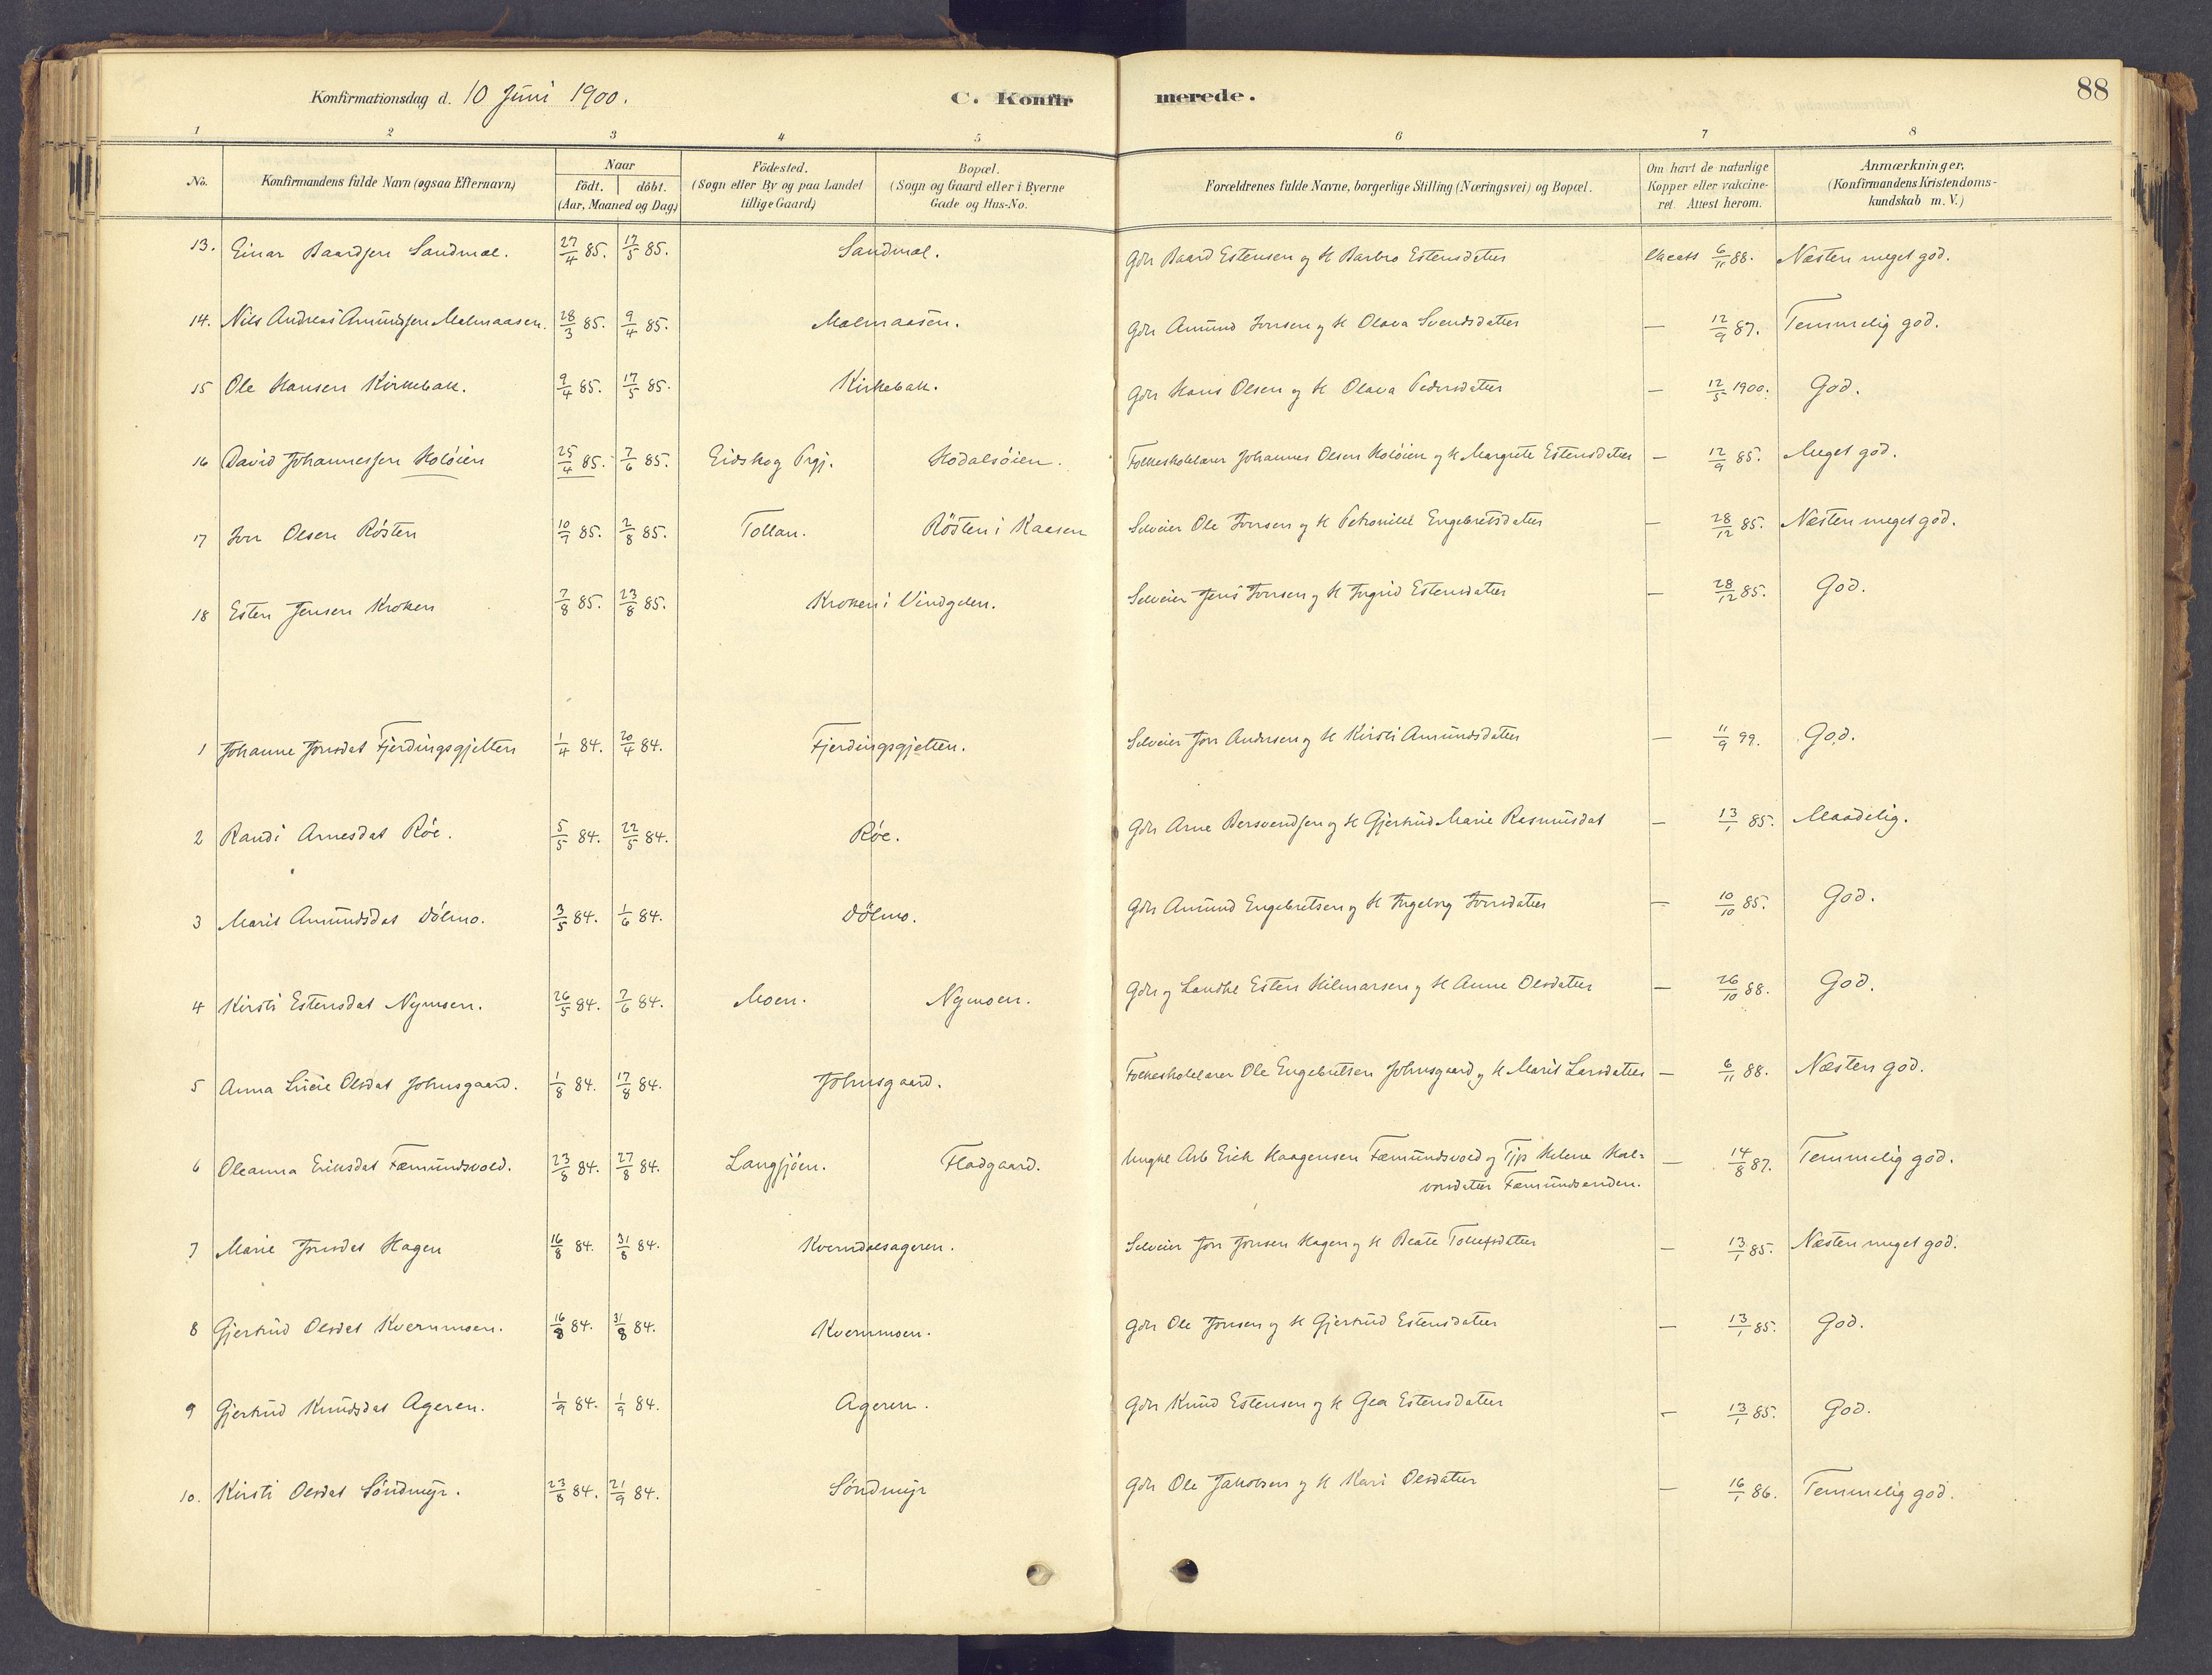 Konfirmationsdag d. 10 Juni 1900. C. Konfirmerede. 88
1 2 3 4 5 6 7 8
No. Konfirmandens fulde Navn (ogsaa Efternavn) Naar födt. döbt. (Aar, Maaned og Dag) Födested. (Sogn eller By og paa Landet tillige Gaard) Bopæl. (Sogn og Gaard eller i Byerne Gade og Hus-No. Forældrenes fulde Navne, borgerlige Stilling (Næringsvei) og Bopæl. Om havt de naturlige Kopper eller vakcineret. Attest herom. Anmærkninger. (Konfirmandens Kristendomskundskab m. V.)
13. Einar Baardsen Sandmæl. 27/4 85. 17/5 85. Sandmæl. Gdr Baard Estensen og H Barbro Estensdatter 6/11 88. Næsten meget god.
14. Nils Andreas Amundsen Malmaasen. 28/3 85. 9/4 85. Malmaasen. Gdr Amund Jonsen og H Olava Svendsdatter — 12/9 87. Temmelig god.
15 Ole Hansen Kirkebak. 9/4 85. 17/5 85. Kirkebak. Gdr Hans Olsen og H Olava Pedersdatter — 12/5 1900. God.
16 David Johannessen Holöien 25/4 85. 7/6 85. Eidskog Prgj. Hodalsöien. Folkeskolelærer Johannes Olsen Holöien og H Margrete Estensdatter — 12/9 85. Meget god.
17 Jon Olsen Rösten 10/7 85. 2/8 85. Tollan. Rösten i Kaasen Selveier Ole Jonsen og H Petronille Engebretsdatter — 28/12 85. Næsten meget god.
18 Esten Jensen Kroken 7/8 85. 23/8 85. Kroken i Vindgelen. Selveier Jens Jonsen og H Ingrid Estensdatter — 28/12 85. God.
1 Johanne Jonsdat Fjerdingsgjelten 1/4 84. 20/4 84. Fjerdingsgjelten. Selveier Jon Andersen og H Kirsti Amundsdatter — 11/9 99. God.
2 Randi Arnesdat Röe. 5/5 84. 22/5 84. Röe. Gdr Arne Bersvendsen og H Gjertrud Marie Rasmusdat — 13/1 85. Maadelig.
3 Marit Amundsdat Dölmo. 3/5 84. 1/6 84. Dölmo. Gdr Amund Engebretsen og H Ingeborg Jonsdatter — 10/10 85. God.
4 Kirsti Estensdat Nymoen. 26/5 84. 7/6 84. Moen. Nymoen. Gdr og Landhl Esten Hilmarsen og H Anne Olsdatter — 26/10 88. God.
5 Anna Lucie Olsdat Johnsgaard. 1/8 84. 17/8 84. Johnsgaard. Folkeskolelærer Ole Engebretsen Johnsgaard og H Marit Larsdatter — 6/11 88. Næsten god.
6 Oleanna Eriksdat Fæmundsvold. 23/8 84. 27/8 84. Langsjöen. Fladgaard. Ungkl Arb Erik Haagensen Fæmundsvold og Tjp Helene Hal-
vorsdatter Fæmundsenden. — 14/8 87. Temmelig god.
7 Marie Jonsdat Hagen 16/8 84. 31/8 84. Kverndalsageren. Selveier Jon Jonsen Hagen og H Beate Tollefsdatter — 13/1 85. Næsten meget god.
8 Gjertrud Olsdat Kvernmoen. 16/8 84. 31/8 84. Kvernmoen. Gdr Ole Jonsen og H Gjertrud Estensdatter — 13/1 85. God.
9 Gjertrud Knudsdat Ageren. 1/9 84. 1/9 84. Ageren. Gdr Knud Estensen og H Gea Estensdatter — 13/1 85. God.
10. Kirsti Olsdat Söndmyr. 23/8 84. 21/9 84. Söndmyr Gdr Ole Jakobsen og H Kari Olsdatter — 16/1 86. Temmelig god.